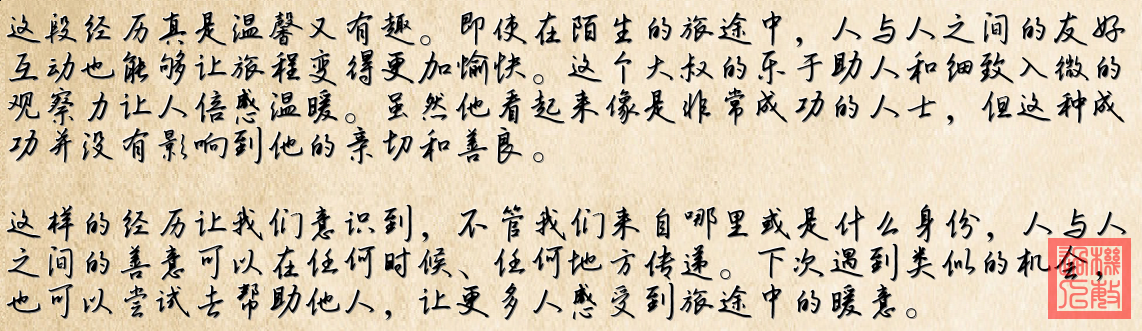 这段经历真是温馨又有趣。即使在陌生的旅途中，人与人之间的友好
互动也能够让旅程变得更加愉快。这个大叔的乐于助人和细致入微的
观察力让人倍感温暖。虽然他看起来像是非常成功的人士，但这种成
功并没有影响到他的亲切和善良。
这样的经历让我们意识到，不管我们来自哪里或是什么身份，人与人
之间的善意可以在任何时候、任何地方传递。下次遇到类似的机会，
也可以尝试去帮助他人，让更多人感受到旅途中的暖意。